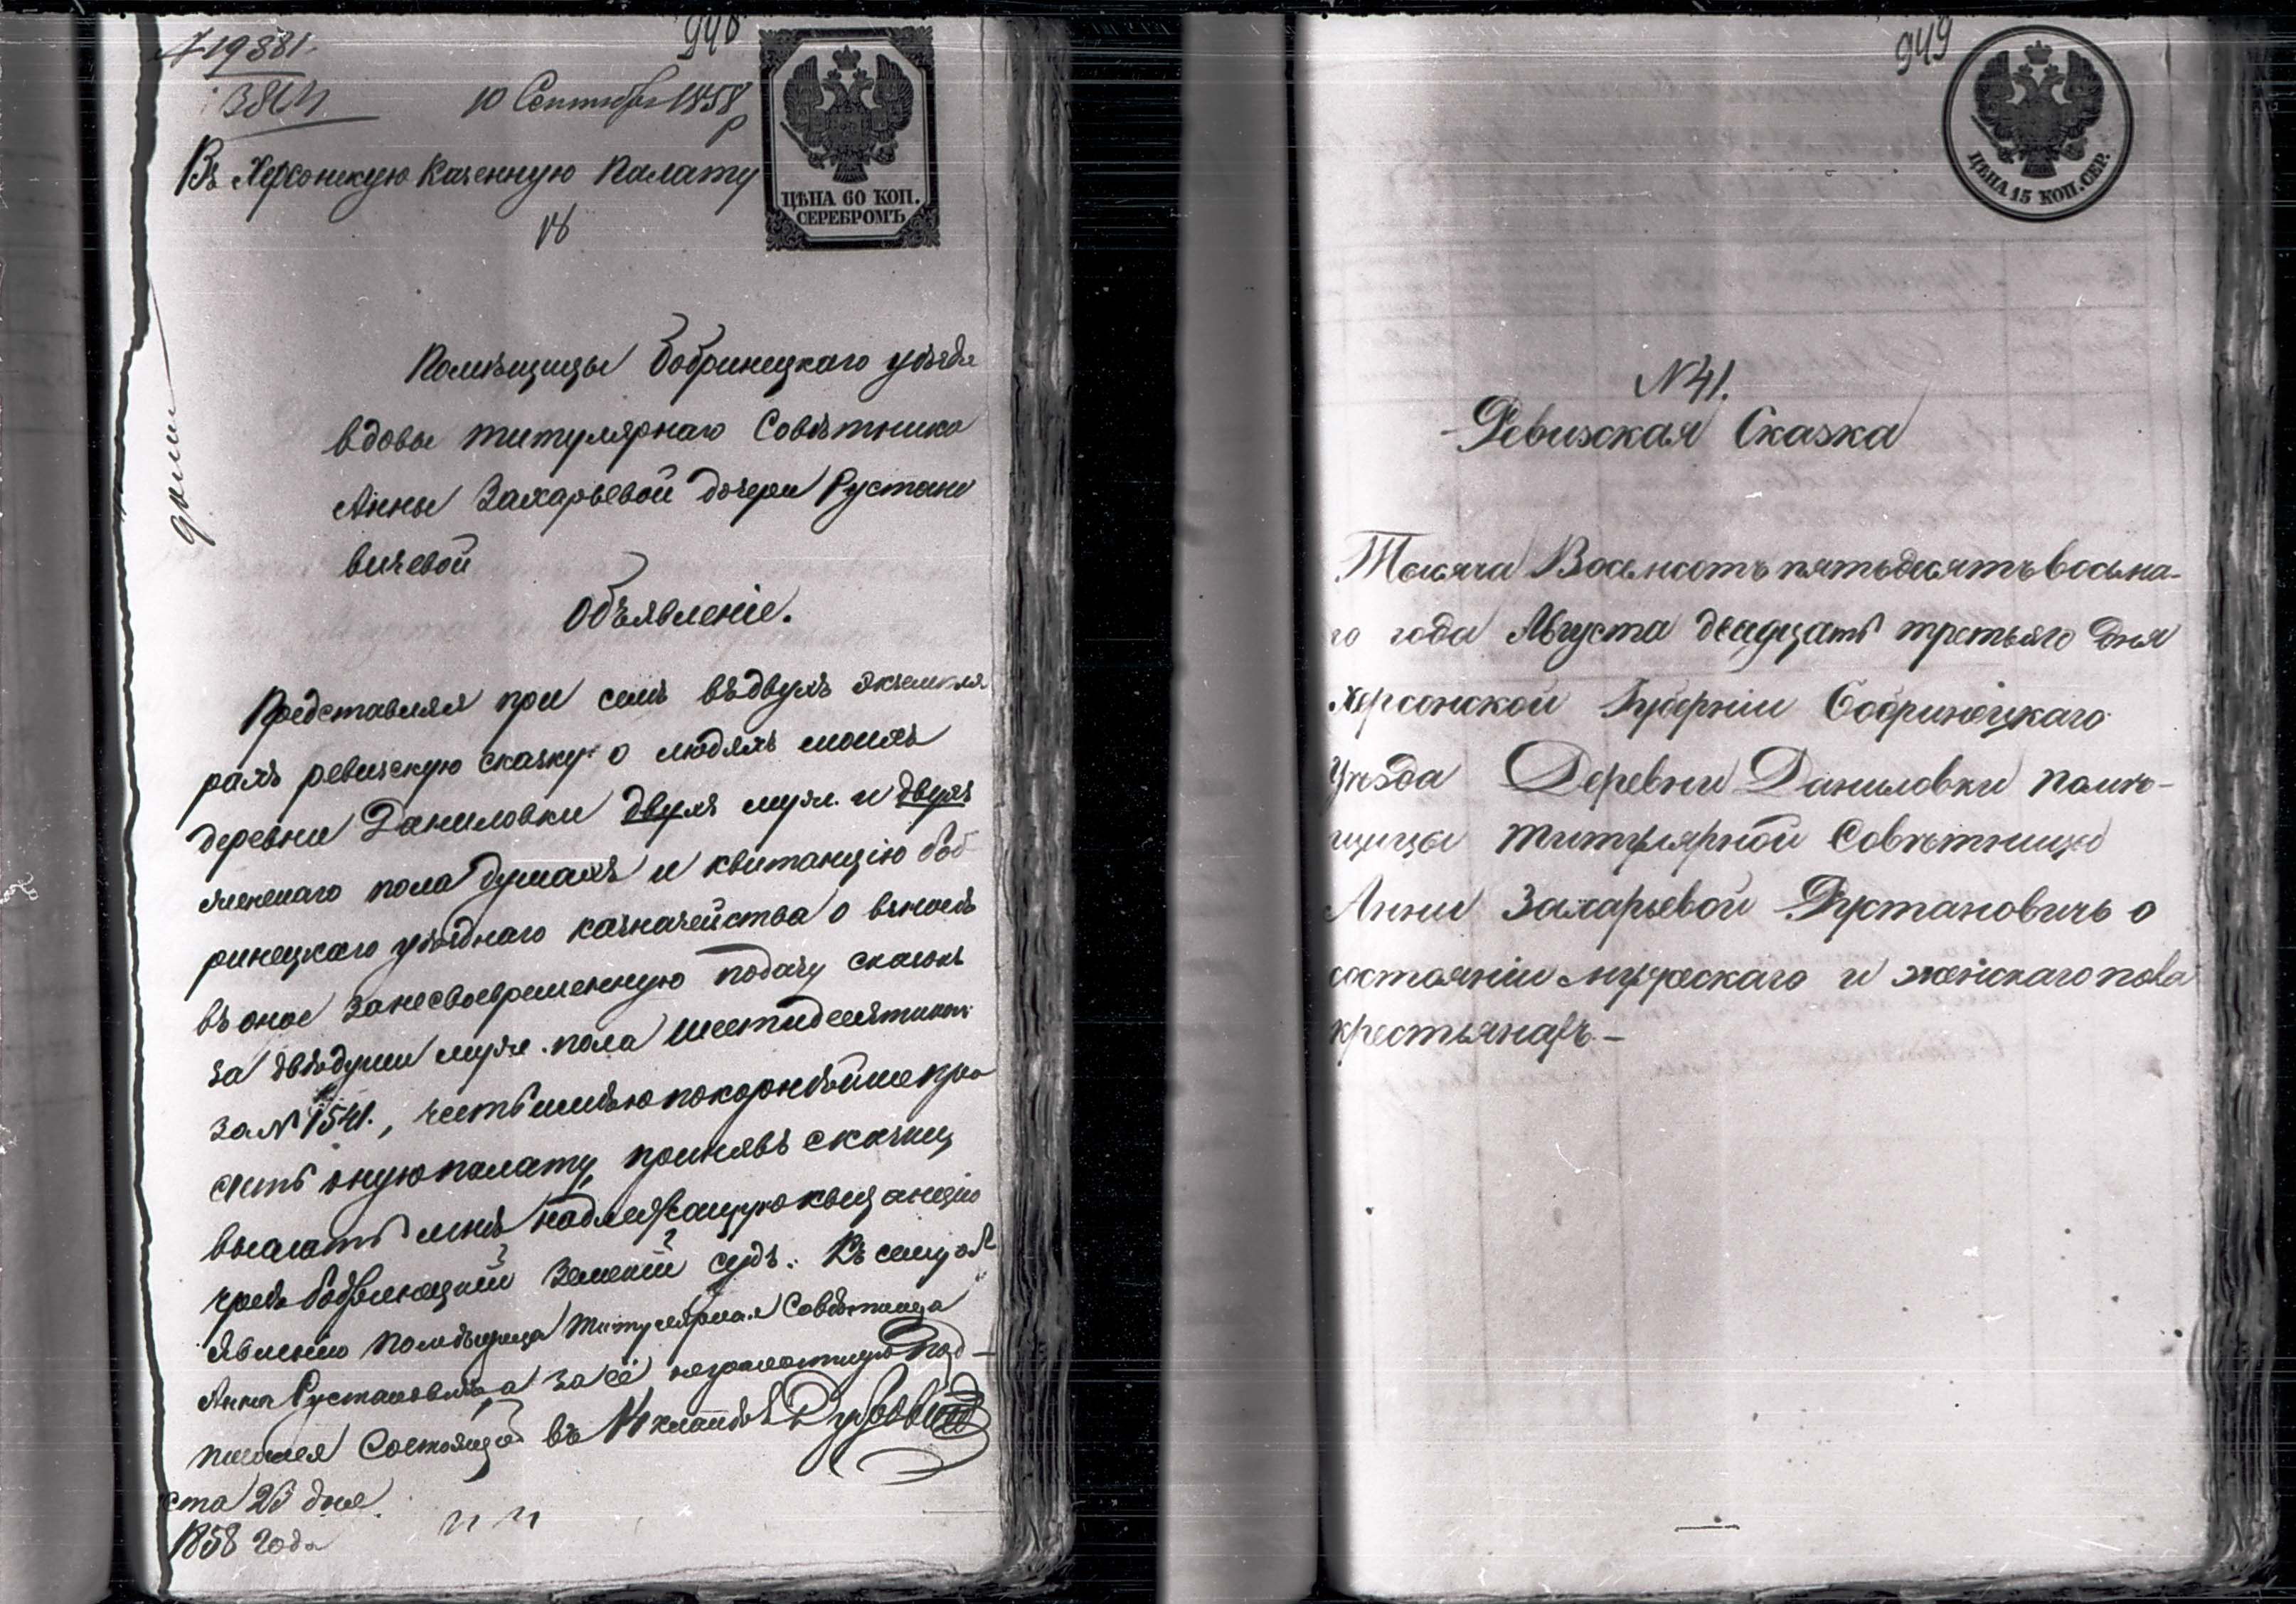 19881
948
10 Сентября 1858
Въ Херсонскую Казенную Палату
ЦѢНА 60 КОП.
СЕРЕБРОМЪ
Помѣщицы Бобринецкаго уѣзда
вдовы титулярнаго Совѣтника
Анны Захарьевой дочери Рустано
вичевой
Объявленіе.
Представляя при семъ въ двухъ экземпля
рахъ ревизскую сказку о людяхъ моихъ
деревни Даниловки двухъ муж. и двухъ
женскаго пола душахъ и квитанцію Боб
ринецкаго уѣзднаго казначейства о взносѣ
въ оное за несвоевременную подачу сказокъ
за двѣ души муж. пола шестидесяти коп.
за N 1541., честь имѣю покорнѣйше про
сить оную палату, принявъ сказки,
выслать мнѣ надлежащую квитанцію
чрезъ Бобринецкій Земскій судъ. Къ сему объ
явленію помѣщица Титулярная Совѣтница
Анна Рустановичъ, а за её неграмотную под-
писался Состоящій въ
ста 23 дня
1858 года
949
ЦѢНА 15 КОП. СЕР.
N 41.
Ревизская Сказка
Тысяча Восьмсотъ пятьдесятъ восьма-
го года Августа двадцать третьяго дня
Херсонской Губерніи Бобринецкаго
Уѣзда Деревни Даниловки помѣ-
щицы титулярной Совѣтницы
Анны Захарьевой Рустановичь о
состояніи мужескаго и женскаго пола
крестьянахъ.-